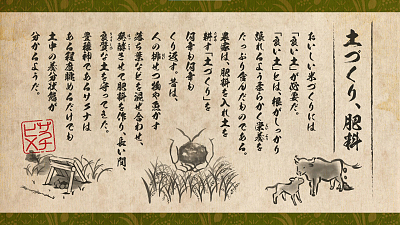 土づくり、肥料
おいしい米づくりには
「良い土」が必要だ。
「良い土」とは、根がしっかり
張れるよう柔らかく栄養を
たっぷり含んだものである。
農家は、肥料を入れ土を
耕す「土づくり」を
何年も何年も
くり返す。昔は、
人の排せつ物や魚かす
落ち葉などを混ぜ合わせ、
発酵させて肥料を作り、長い間、
良質な土を守ってきた。
豊穣神であるサクナは
ある程度眺めるだけでも
土中の養分状態が
分かるようだ。
サクナヒメ